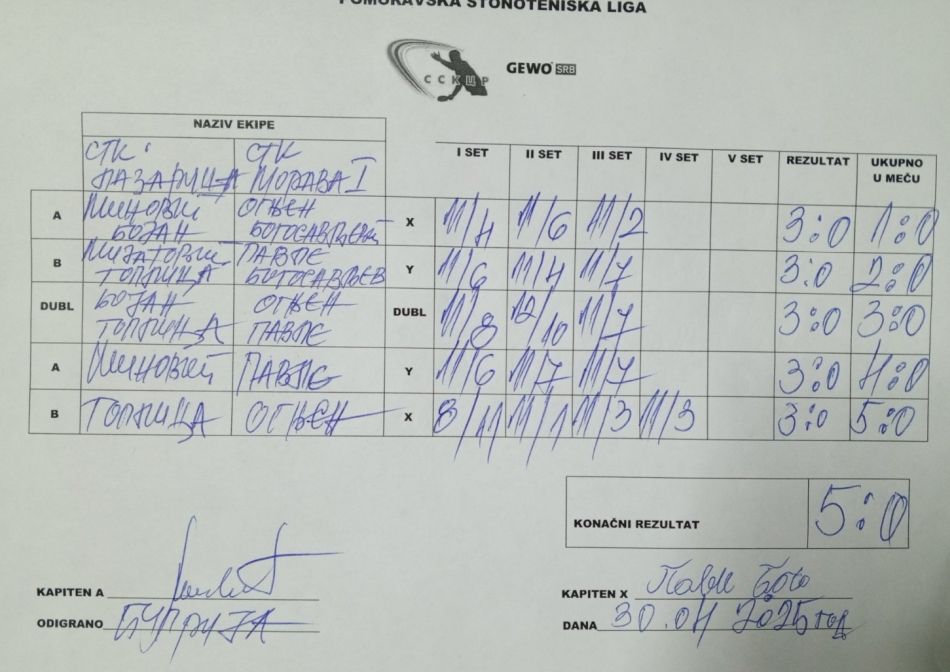 POMORAVSKA STONOTENISKA LIGA
ССКЦР
GEWO SRB
NAZIV EKIPE
I SET II SET III SET IV SET V SET REZULTAT UKUPNO U MEČU
СТК СТК
ЛАЗАРИЦА МОРАВА I
A МИНОВИЋ ОГЊЕН X 11/4 11/6 11/2 3:0 1:0
БОЈАН БОГОСАВЉЕВИЋ
B ПАВЛЕ Y 11/6 11/4 11/7 3:0 2:0
ТОПЛИЦА БОГОСАВЉЕВ
DUBL БОЈАН ОГЊЕН DUBL 11/8 12/10 11/7 3:0 3:0
ТОПЛИЦА ПАВЛЕ
A МИНОВИЋ ПАВЛЕ Y 11/6 11/7 11/7 3:0 4:0
B ТОПЛИЦА ОГЊЕН X 8/11 11/1 11/3 11/3 3:0 5:0
KONAČNI REZULTAT 5:0
KAPITEN A
KAPITEN X Павле Бого
ODIGRANO ЋУПРИЈА
DANA 30.04 2025 год